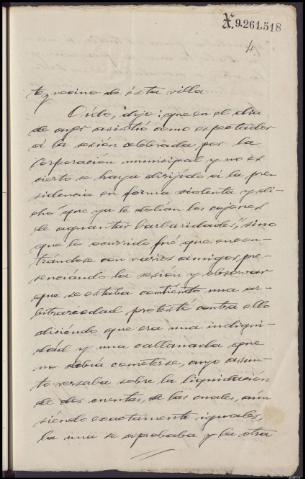 A 9.261.518
4
te, vecino de esta villa.
Oido, dijo: que en el dia
de ayer asistió como espectador
á la sesión celebrada por la
Corporación municipal y no es
cierto se haya dirijido á la pre
sidencia en forma violenta y di
cho "que ya le dolian los cojones
de aguantar barbaridades", sino
que lo ocurrido fué que encon
trandose con varios amigos pre
senciando la sesión y observar
que se estaba cometiendo una ar
bitrariedad protestó contra ello
diciendo que era una indigni
dad y una cattanada que
no debia cometerse, cuyo asun
to versaba sobre la liquidación
de dos cuentas, de las cuales, aun
siendo exactamente iguales,
la una se aprobaba y la otra